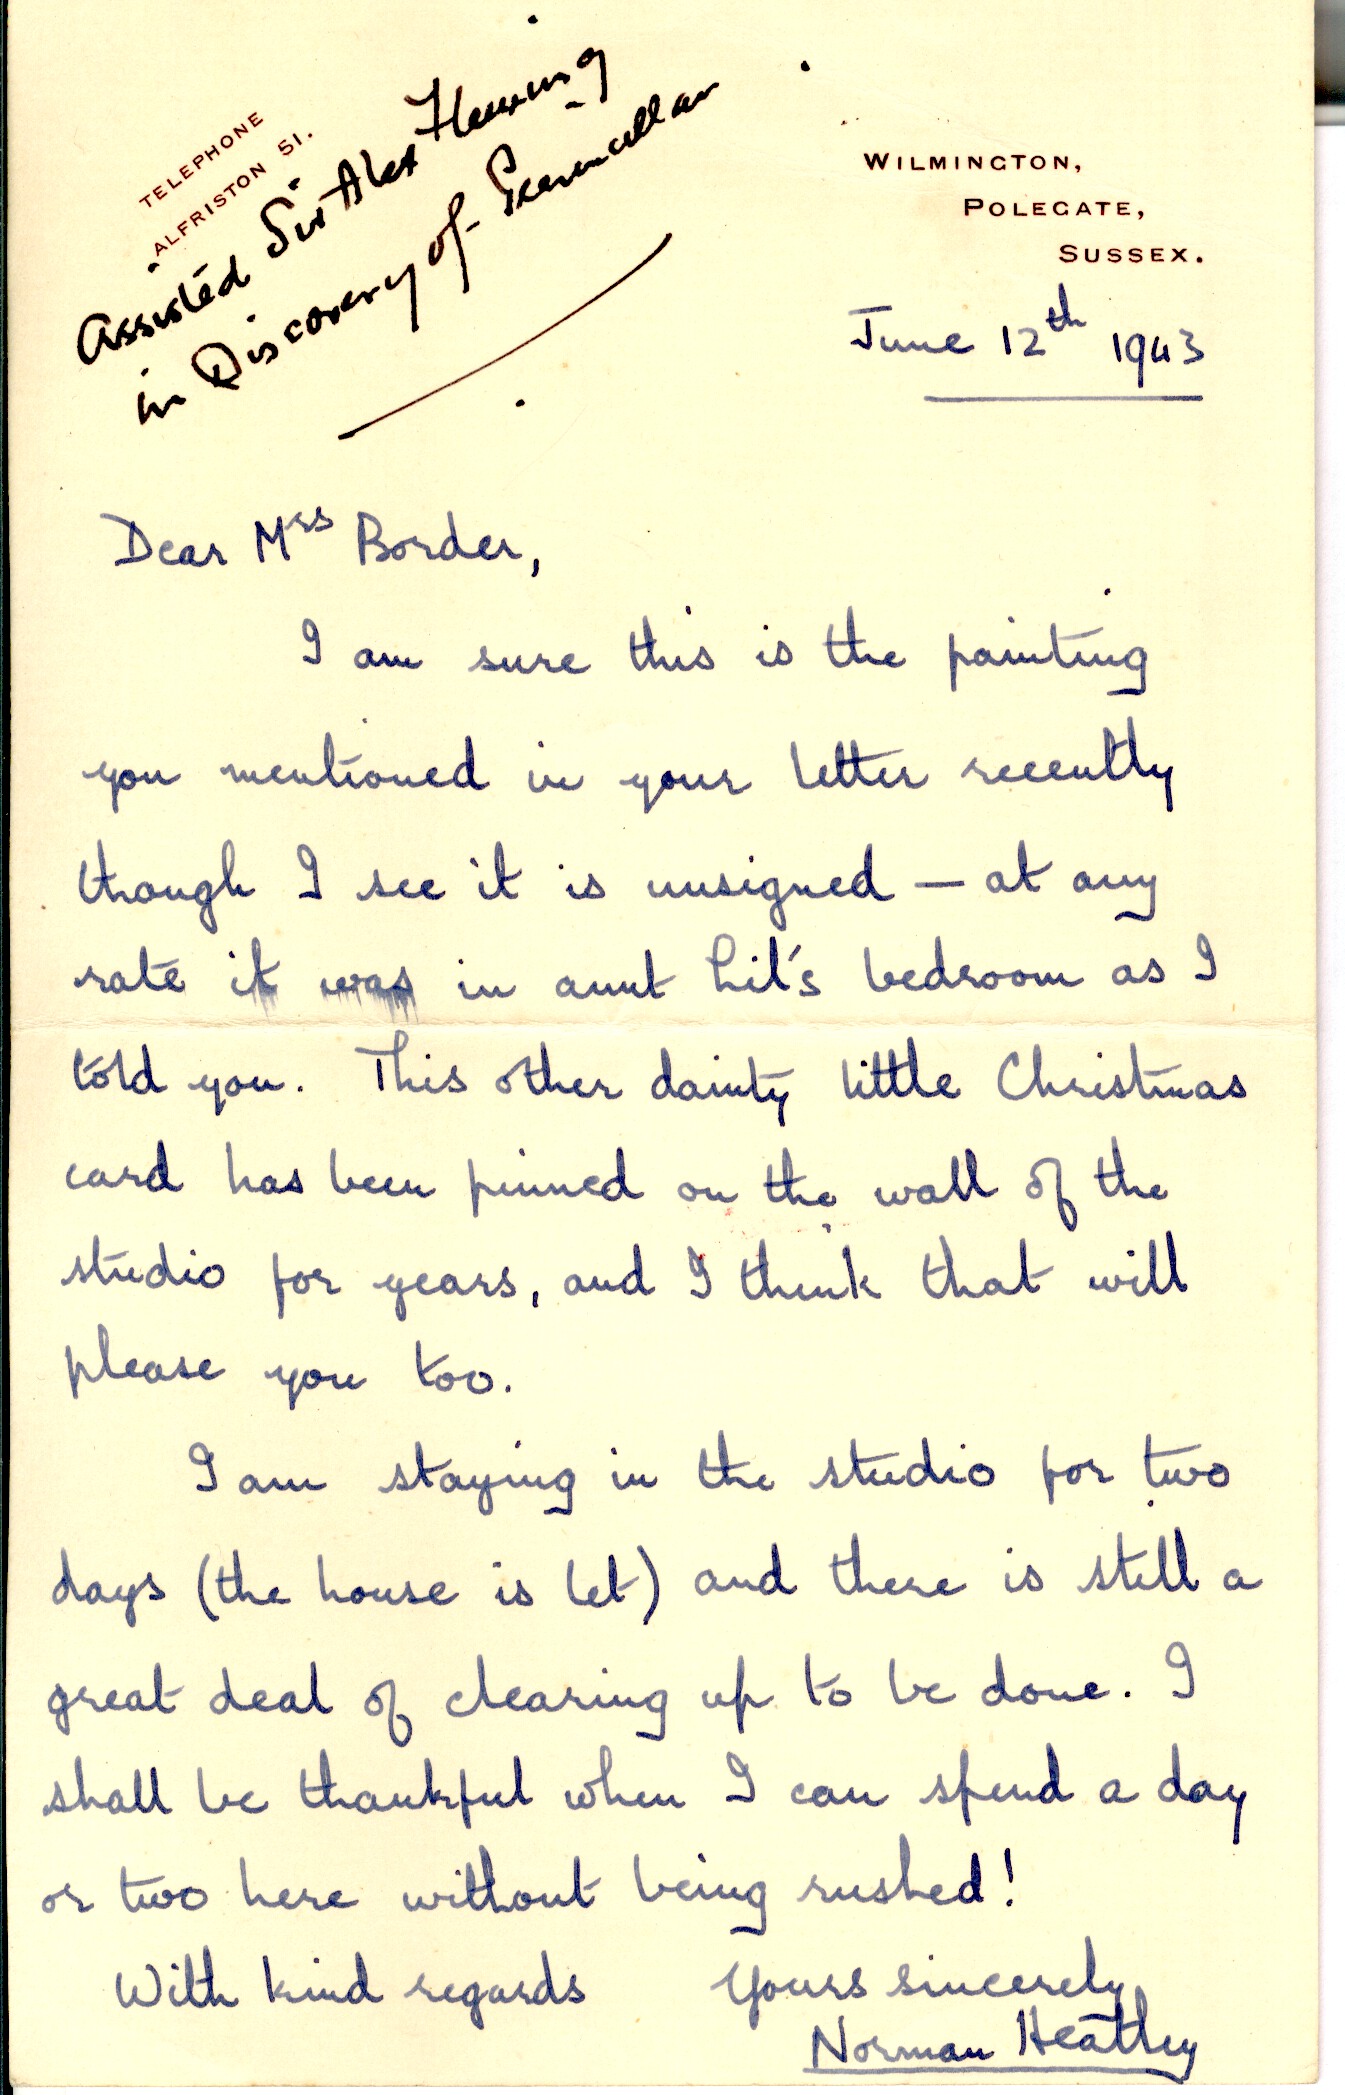 TELEPHONE
ALFRISTON 51.
Assisted Sir Alex Fleming
in Discovery of
WILMINGTON,
POLEGATE,
SUSSEX.
June 12th 1943
Dear Mrs Border,
I am sure this is the painting
you mentioned in your letter recently
though I see it is unsigned — at any
rate it was in aunt Lil's bedroom as I
told you. This other dainty little Christmas
card has been pinned on the wall of the
studio for years, and I think that will
please you too.
I am staying in the studio for two
days (the house is let) and there is still a
great deal of clearing up to be done. I
shall be thankful when I can spend a day
or two here without being rushed!
With kind regards Yours sincerely,
Norman Heatley